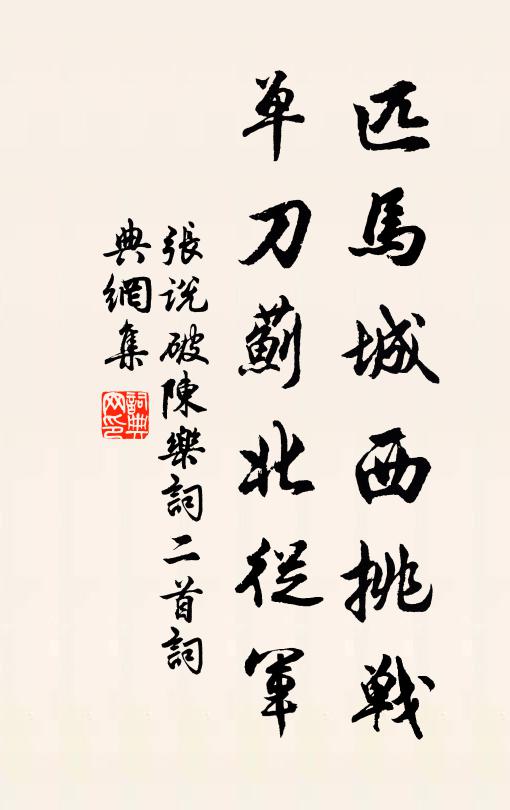 匹馬城西挑戦
单刀薊北從軍
張説破陳樂詞二首詞
典網集
詞典网印